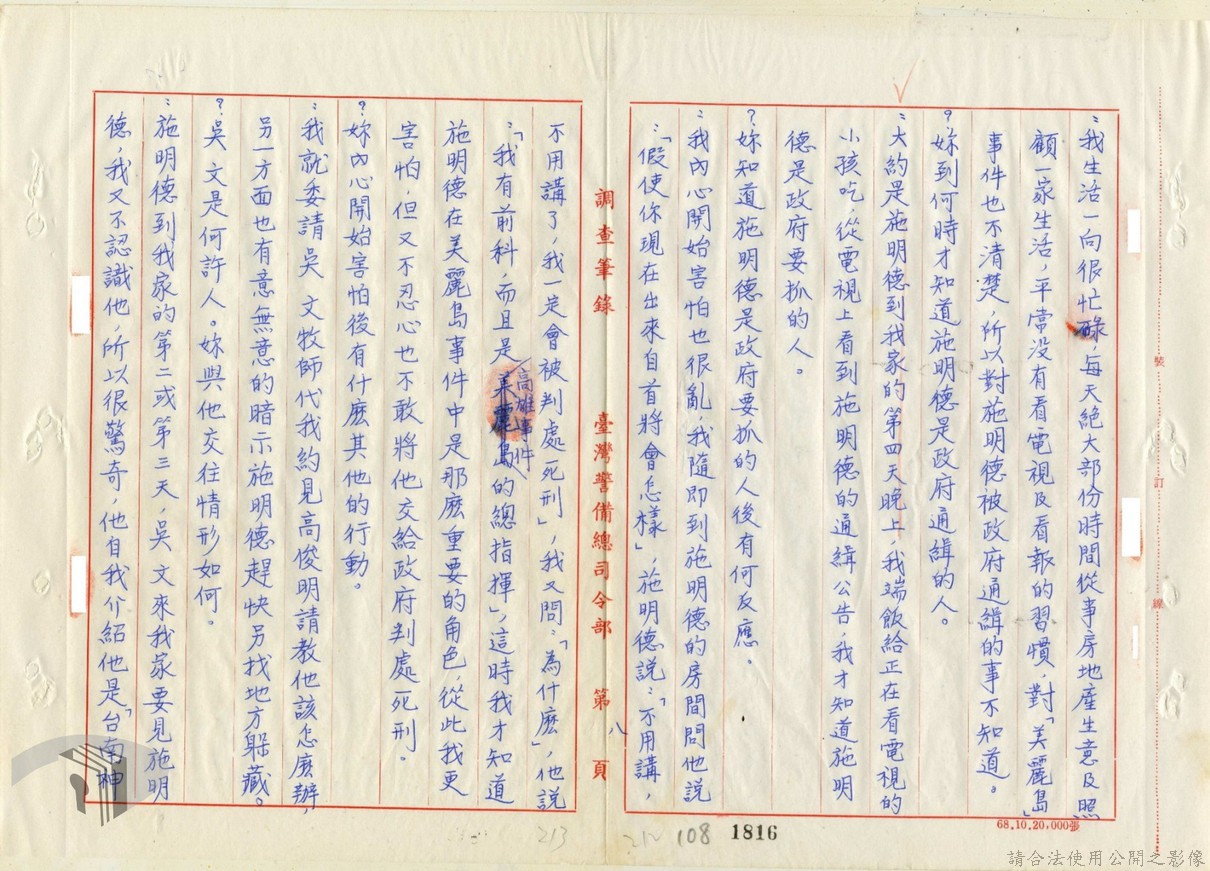 ：我生活一向很忙碌，每天絕大部份時間從事房地產生意及照
顧一家生活，平常没有看電視及看報的習慣，對「美麗島」
事件也不清楚，所以對施明德被政府通緝的事不知道。
？妳到何時才知道施明德是政府通緝的人。
：大約是施明德到我家的第四天晚上，我端飯給正在看電視的
小孩吃，從電視上看到施明德的通緝公告，我才知道施明
德是政府要抓的人。
？妳知道施明德是政府要抓的人後有何反應。
：我內心開始害怕也很亂，我隨即到施明德的房間問他說
：「假使你現在出來自首將會怎樣」，施明德說：「不用講，
調查筆錄 臺灣警備總司令部 第八頁
不用講了，我一定會被判處死刑」，我又問：「為什麽」，他說
：「我有前科，而且是美麗島高雄事件的總指揮」，這時我才知道
施明德在美麗島事件中是那麽重要的角色，從此我更
害怕，但又不忍心也不敢將他交給政府判處死刑。
？妳內心開始害怕後有什麽其他的行動。
：我就委請吳文牧師代我約見高俊明請教他該怎麽辦，
另一方面也有意無意的暗示施明德趕快另找地方躲藏。
？吳文是何許人。妳與他交往情形如何。
：施明德到我家的第二或第三天，吳文來我家要見施明
德，我又不認識他，所以很驚奇，他自我介紹他是「台南神
裝訂線
68.10.20,000張
213
212
108
1816
請合法使用公開之影像